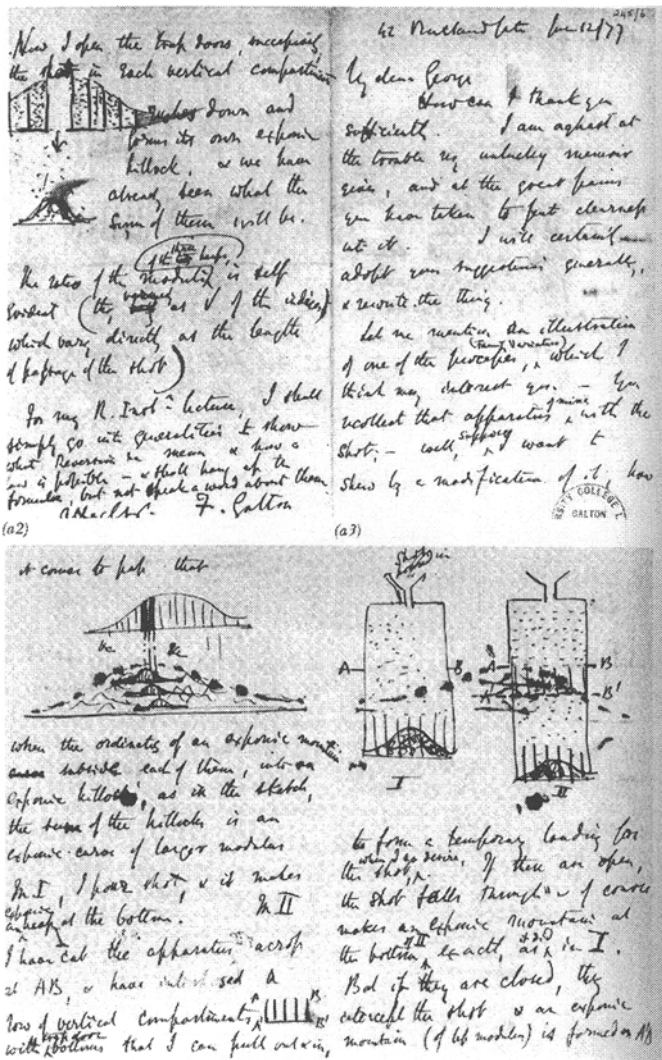 Now I open the trap doors, succeeding
the shot in each vertical compartment
rushes down and
forms its own exponic
hillock, & we have
already seen what the
sum of them will be.
of the three heaps
The ratio of the moduli is self
evident (they vary as √ of the
which vary directly as the length
of passage of the shot)
For my R. Instn lecture, I shall
simply go into generalities to show
what Reversion is mean & how a
law is possible – & shall hang up the
formulae, but not speak a word about them
F. Galton
(a2)
245/6
42 Rutland Gate Jan 12/77
My dear George
How can I thank you
sufficiently. I am aghast at
the trouble my unlucky memoir
gives, and at the great pains
you have taken to put clearness
into it. I will certainly
adopt your suggestions generally,
& rewrite the thing.
Let me mention an illustration
(Family Variation)
of one of the processes, which I
think may interest you. – You
recollect that apparatus of mine with the
shot; – well, suppose I want to
shew by a modification of it, how
SITY COLLEGE L
GALTON
(a3)
it comes to pass that
when the ordinates of an exponic mountain
subside each of them, into an
exponic hillock, as in the sketch,
the sum of the hillocks is an
exponic curve of larger modulus
In I, I pour shot, & it makes
exponic
an heap at the bottom. In II
I have cut the apparatus across
at AB, & have interposed a
row of vertical compartments, A B
A' B'
with trap door bottoms that I can pull out & in,
shot in
here
A B
I
A B
A' B'
II
to form a temporary landing for
the shot, when I so desire. If these are open,
the shot falls through & of course
makes an exponic mountain at
the bottom II exactly as it did in I.
But if they are closed, they
intercept the shot & an exponic
mountain (of less modulus) is formed on A'B'